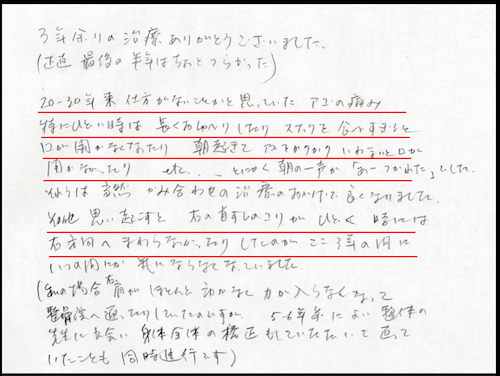 3年余りの治療ありがとうございました.
(正直 最後の半年はちょっとつらかった)
20-30年来 仕方がないことかと思っていた アゴの痛み
特にひどい時は 長くおしゃべりしたり スナックを食べすぎると
口が開かなくなったり 朝起きて アゴをカクカクいわせないと口が
開かなかったり etc... とにかく朝の一声が「あーつかれた」でした.
それらは当然 かみ合わせの治療のおかげで良くなりました.
その他 思い起こすと 右の首すじのコリが ひどく 時には
右方向へ まわらなかったりしたのが ここ3年の間に
いつの間にか 気にならなくなっていました.
(私の場合右肩がほとんど動かなく力が入らなくなって
整骨院へ通ったりしていたのですが 5-6年来によい整体の
先生に出会い 身体全体の矯正もしていただいて直って
いたことも 同時進行です)